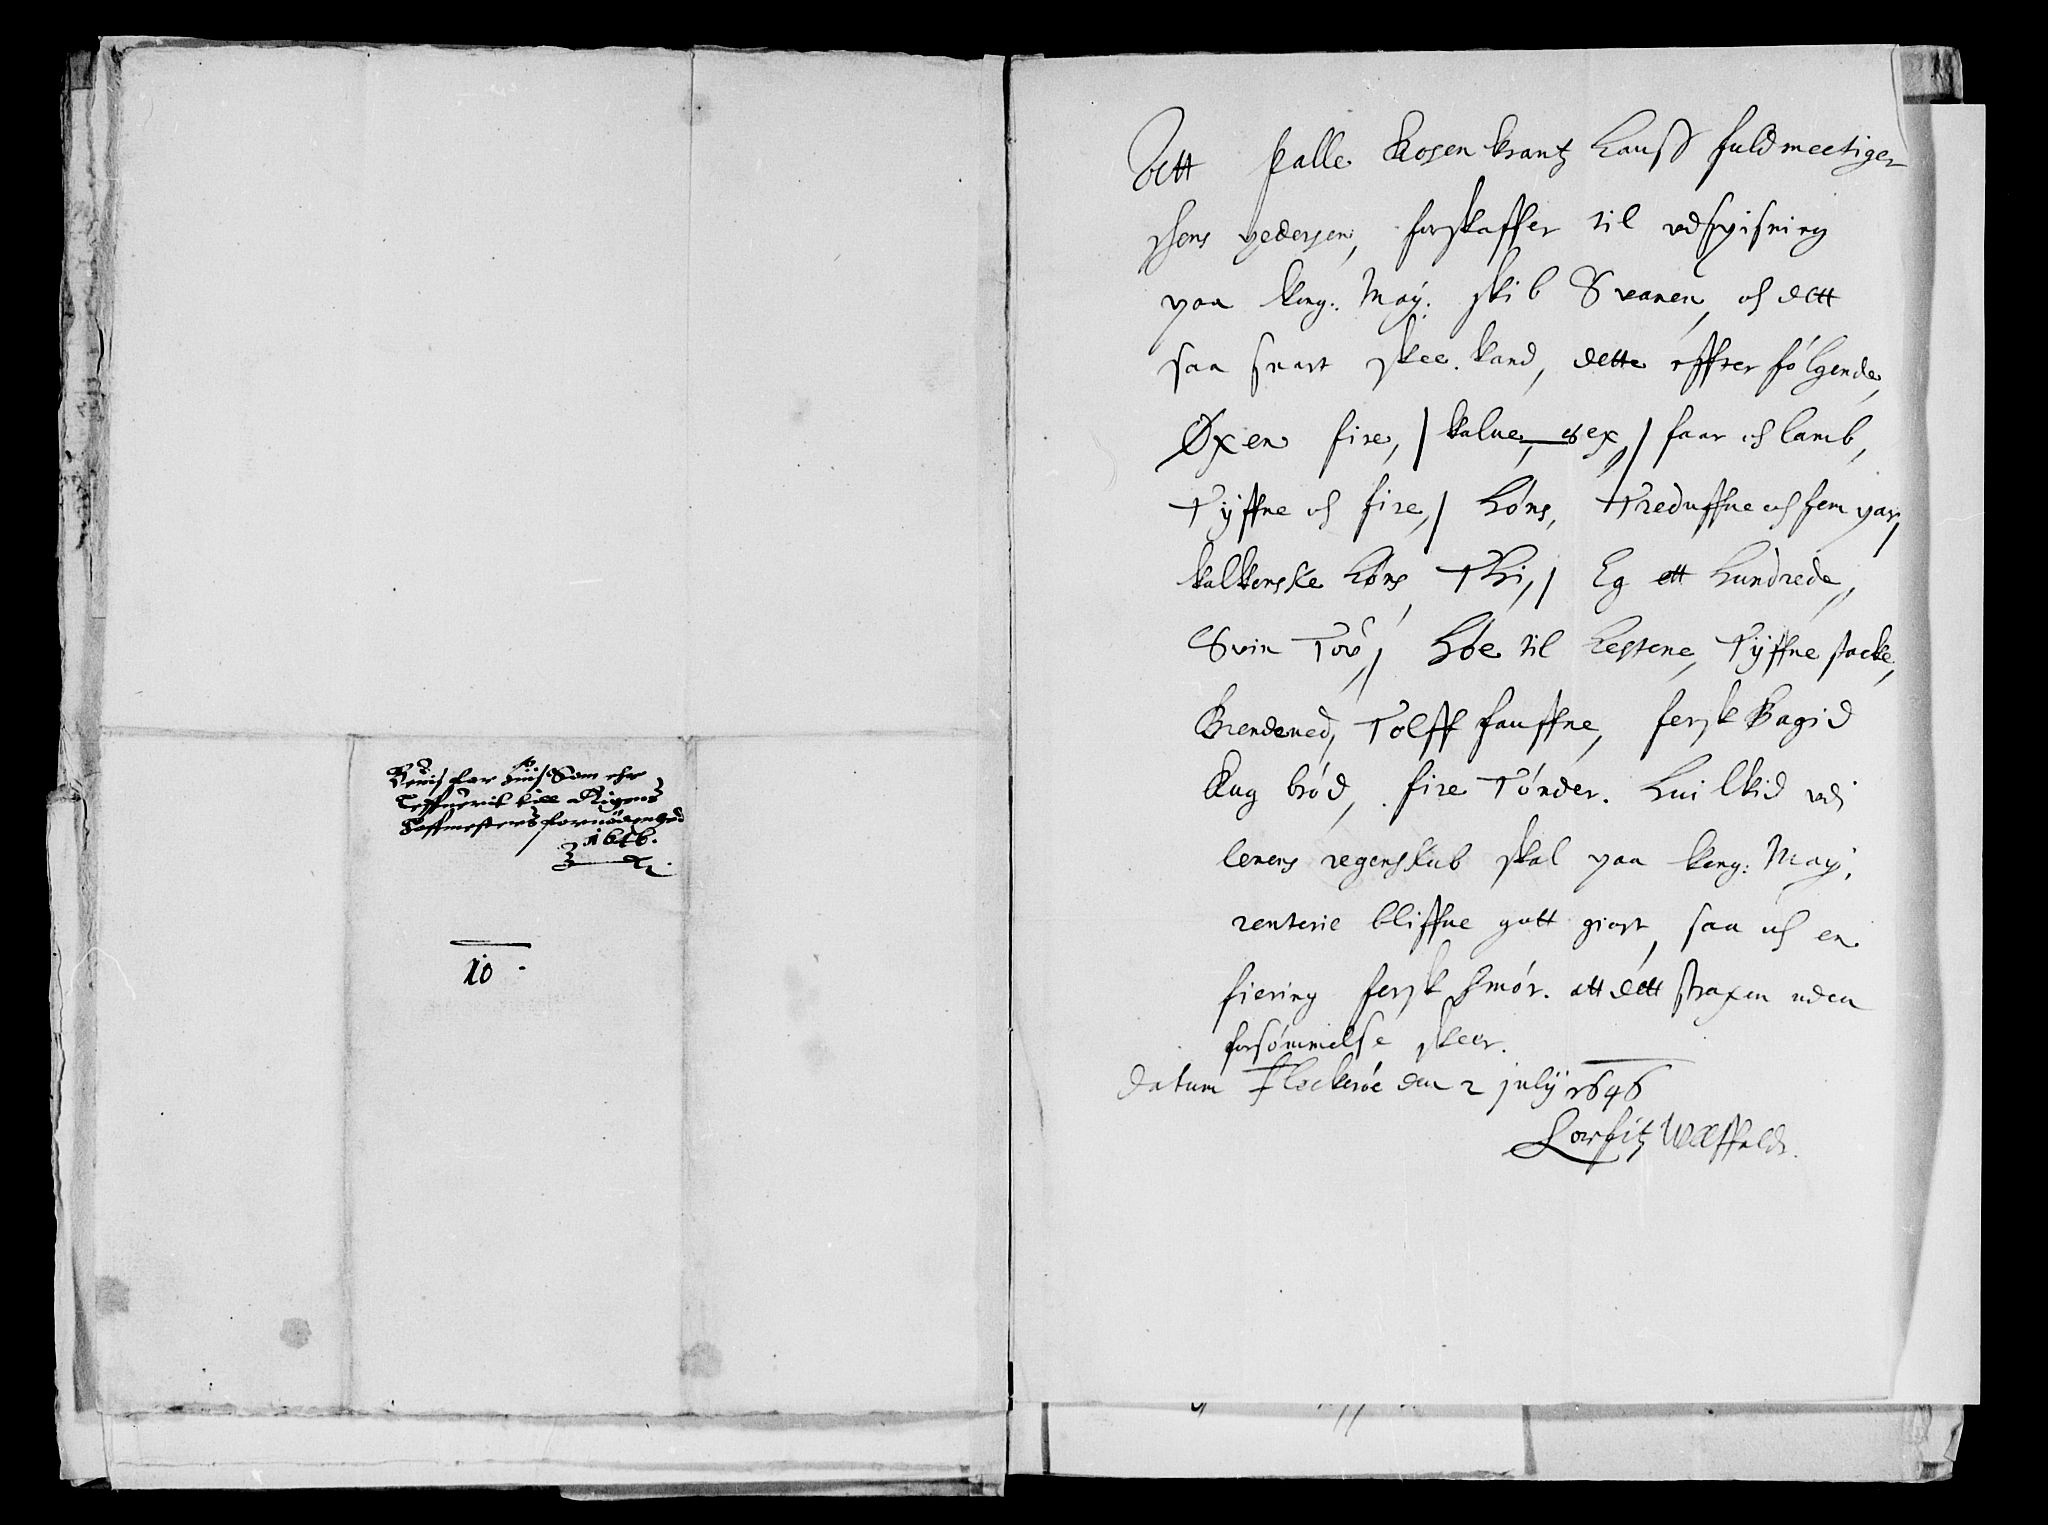 Bewis for huis Som ehr
Leffuerit till Rigens
Hoffmesters fornødenhed
1646.
10.
Att Palle Rosenkrantz hanss fuldmectiger
Jens pedersen, forskaffer til udspisning
paa kong: May: skib Svanen, oc dett
saa snart skee kand, dette effter følgende,
Øxen fire, / kalue, sex, / faar oc lamb,
Tyffue oc fire, / Høns, Treduffue oc fem par,
kalkonske høns, Thi, / Eg ett hundrede,
Svin Tov, / Høe til hestene, Tyffue stacke,
Brendeued, Tolff fauffne, fersk Bagid
Rug brød, fire Tønder. Huilkid udi
lenens regenskab skal paa kong: May:
renterie bliffue gott giort, saa oc en
fiering fersk smør. att dett straxen uden
forsømmelse skeer.
datum Fleckerøe den 2 julij 1646
Corfitz Ulffeldt.